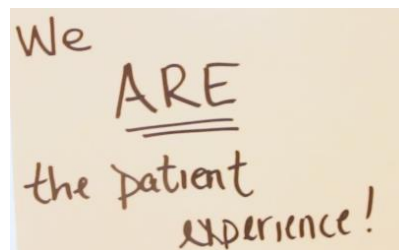 We
ARE
the patient
experience!